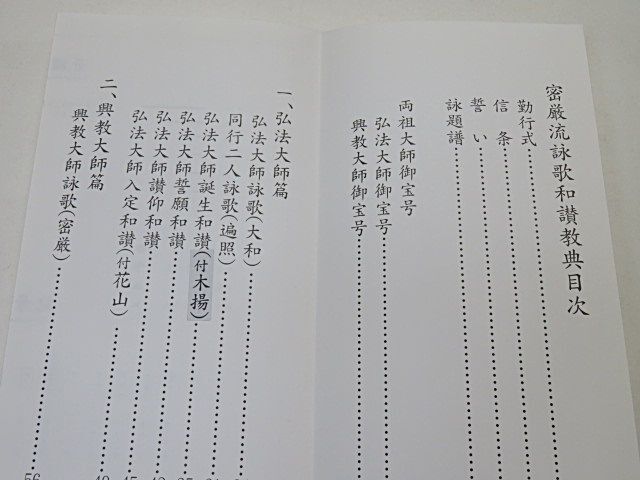 密厳流詠歌和讃教典目次
勤行式
信条
誓い
詠題譜
両祖大師御宝号
弘法大師御宝号
興教大師御宝号
一、弘法大師篇
弘法大師詠歌(大和)
同行二人詠歌(遍照)
弘法大師誕生和讃(付木揚)
弘法大師誓願和讃
弘法大師讃仰和讃
弘法大師入定和讃(付花山)
二、興教大師篇
興教大師詠歌(密厳)
56